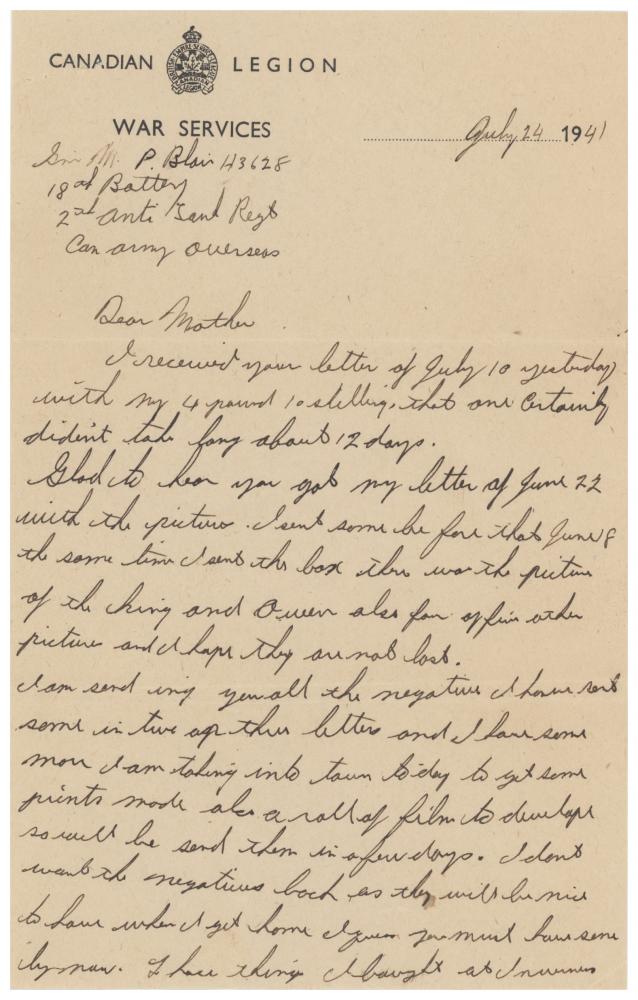 CANADIAN LEGION
WAR SERVICES
July 24 1941
Gnr M. P. Blair H3628
18th Battery
2nd Anti Tank Regt
Can army overseas
Dear Mother
I received your letter of July 10 yesterday
with my 4 pound 10 shilling, that one Certainly
dident take long about 12 days.
Glad to hear you got my letter of June 22
with the picture. I sent some be fore that June 18
the same time I sent the box there was the picture
of the King and Queen also four or five other
picture and I hope they are not lost.
I am send ing you all the negative I have sent
some in two or three letters and I have some
more I am taking into town to day to get some
prints made also a roll of film to develope
so will be send them in a few days. I dont
want the negatives back as they will be nice
to have when I get home I guess you must have some
by now. I have things I bought at Inverness